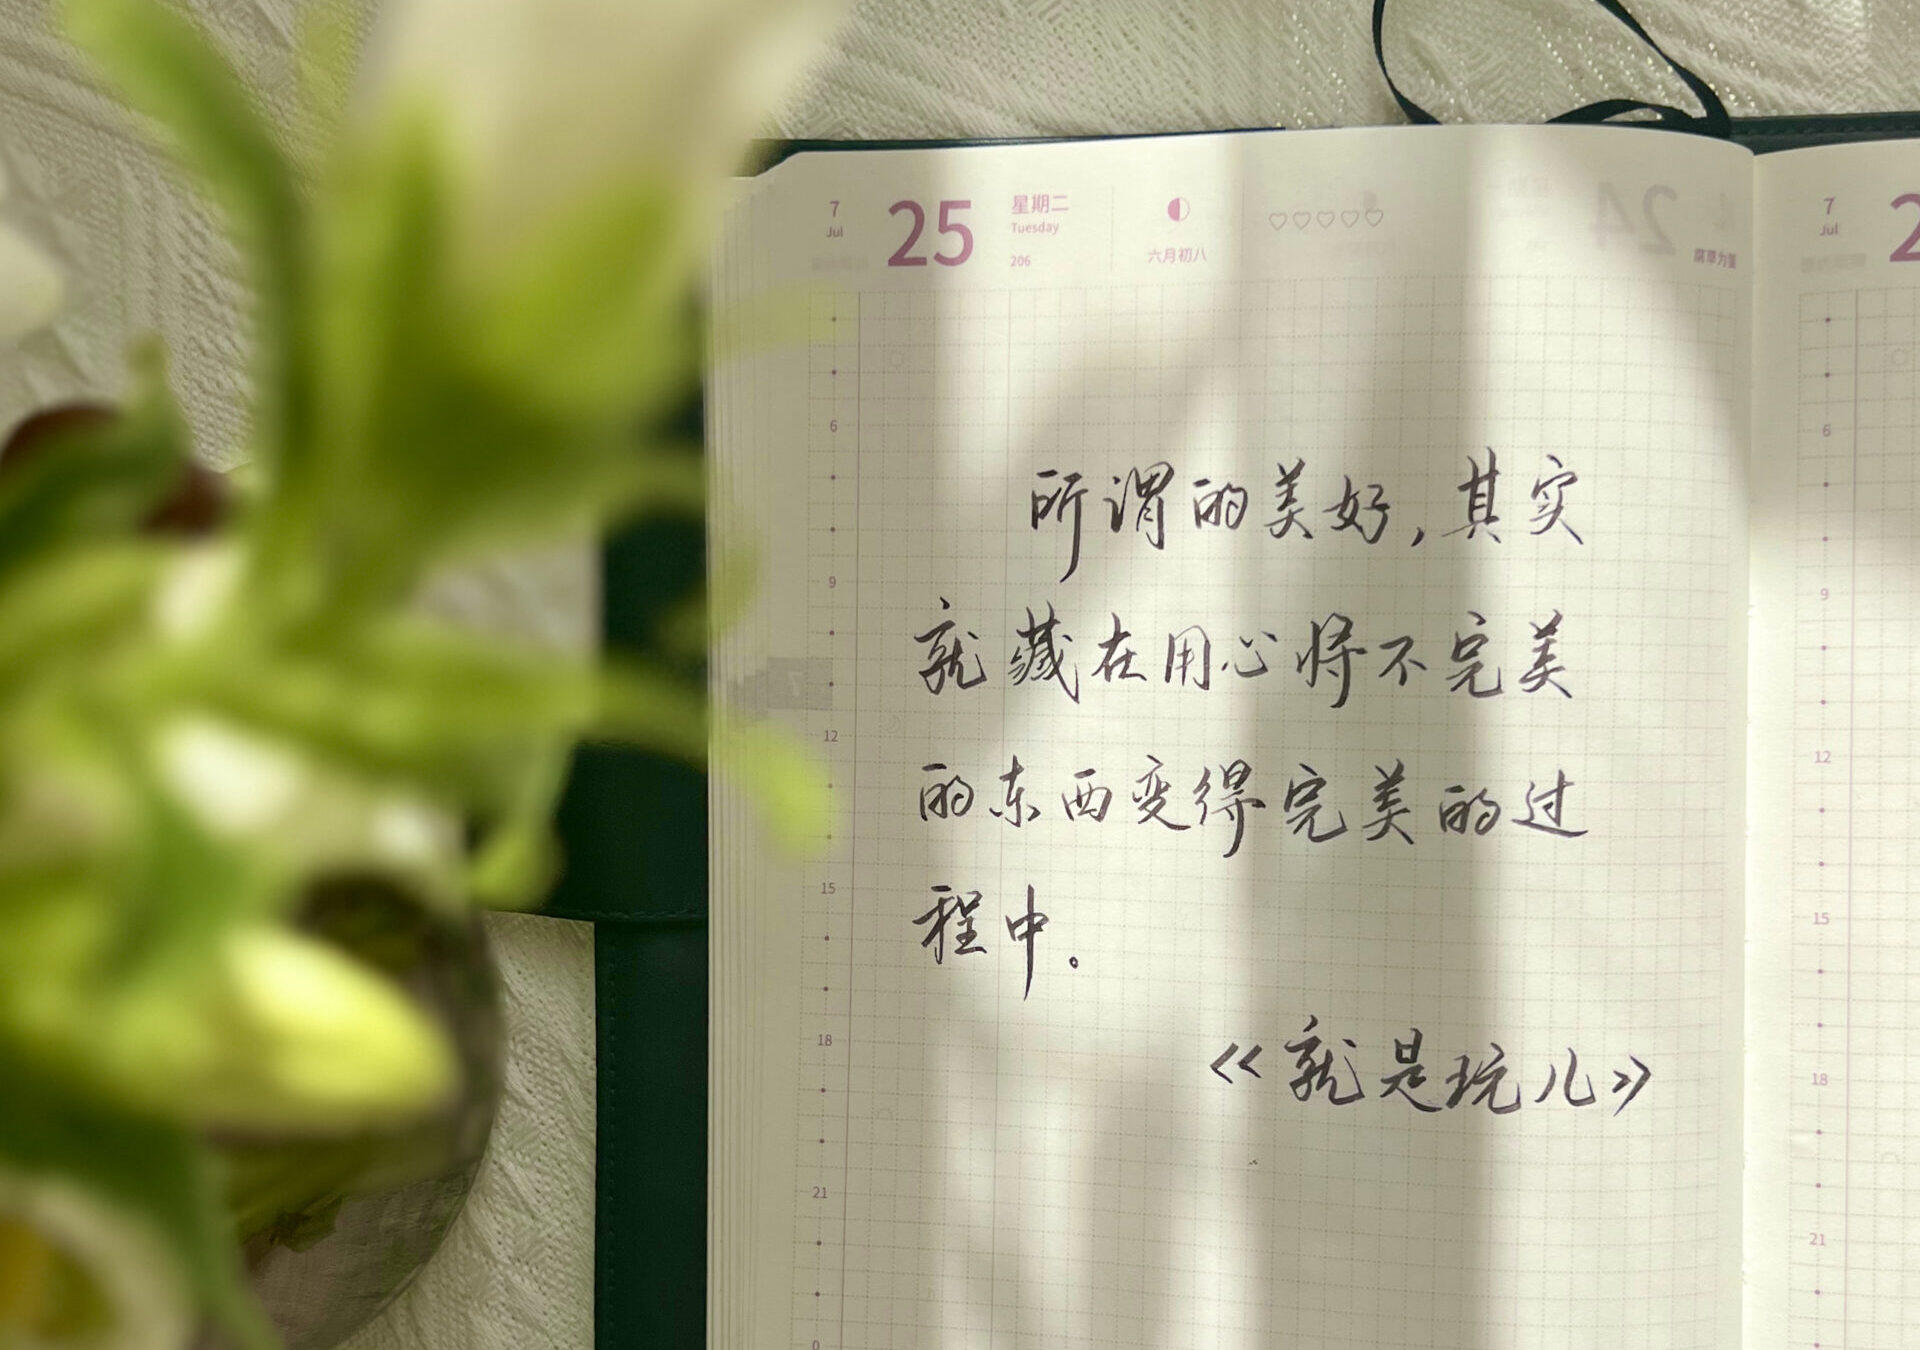 7
Jul
25
星期二
Tuesday
206
六月初八
24
腐草为萤
7
Jul
2
所谓的美好,其实
就藏在用心将不完美
的东西变得完美的过
程中。
《就是玩儿》
6
9
12
15
18
21
0
6
9
12
15
18
21